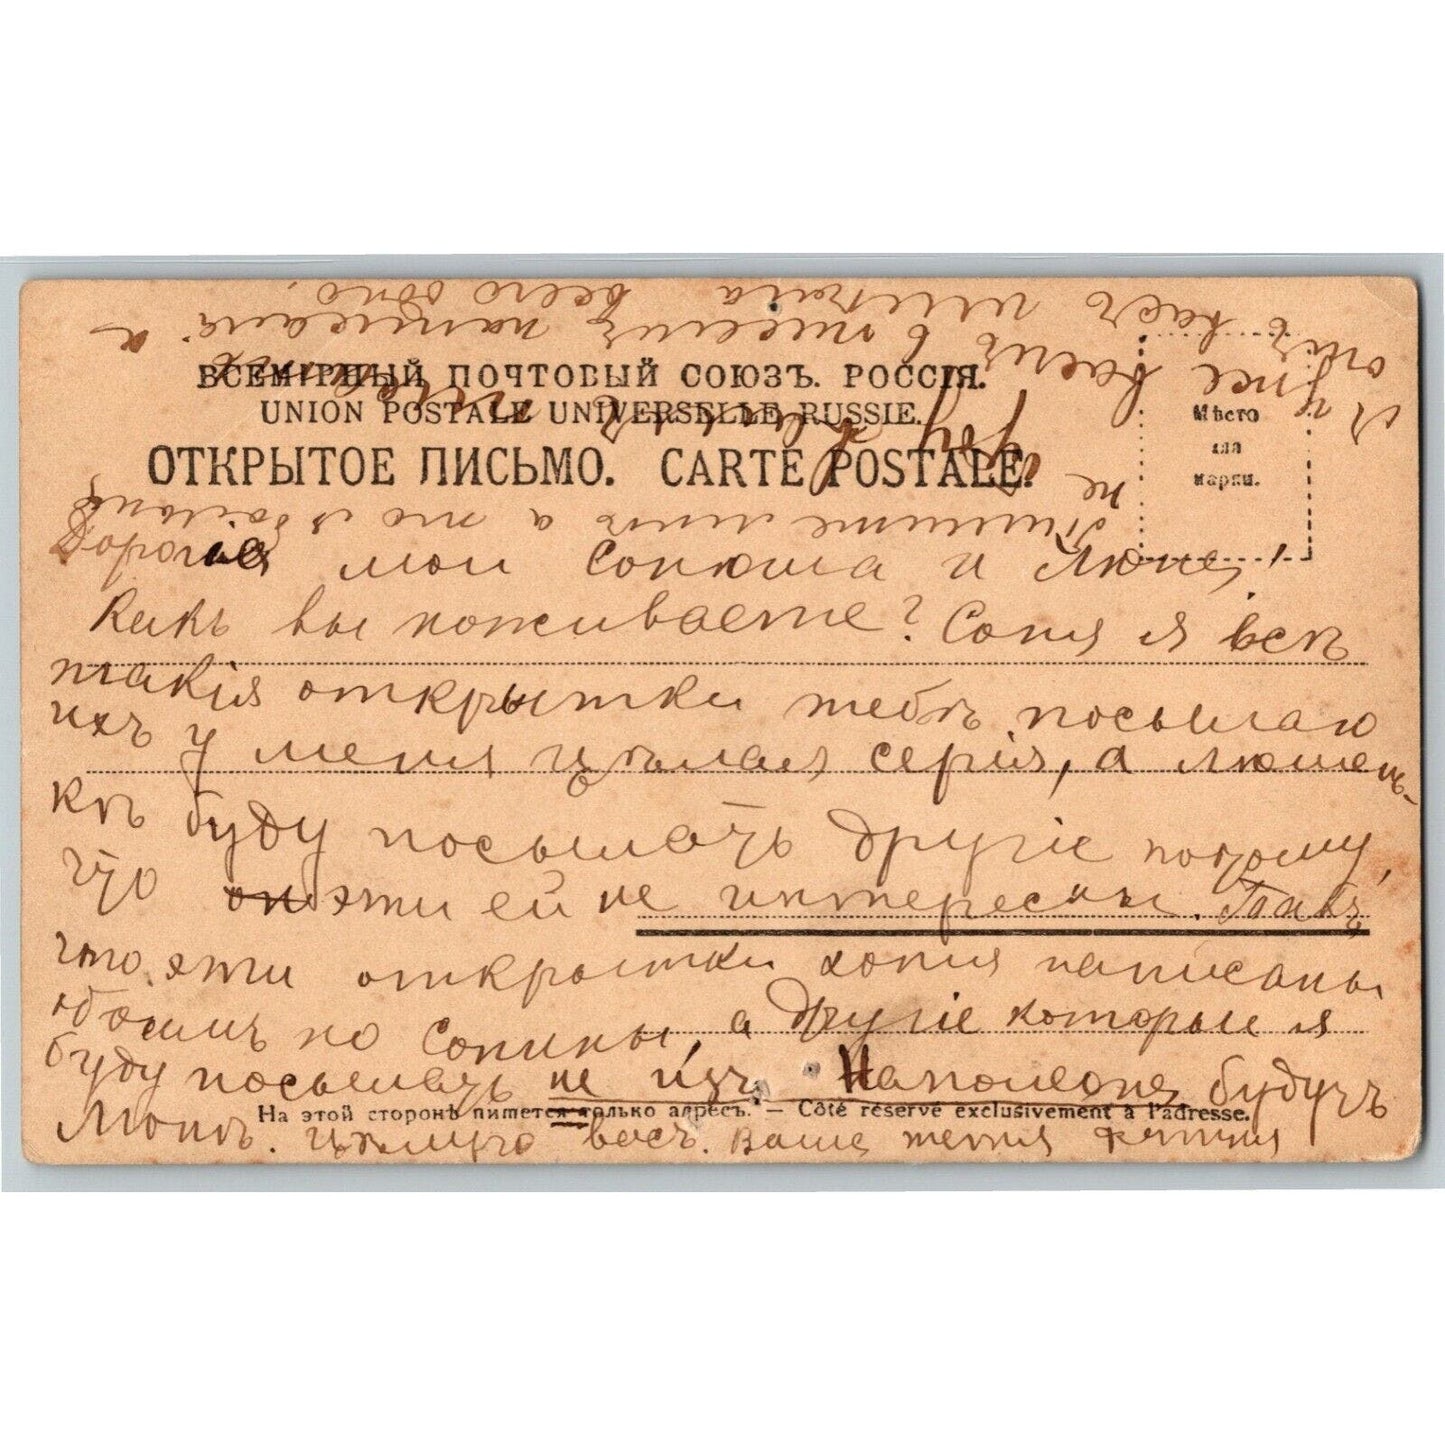 ВСЕМІРНЫЙ ПОЧТОВЫЙ СОЮЗЪ. РОССІЯ.
UNION POSTALE UNIVERSELLE. RUSSIE.
ОТКРЫТОЕ ПИСЬМО. CARTE POSTALE.
Мѣсто
для
марки.
Дорогія мои Сонюша и Люня,
Какъ вы поживаете? Соня я всѣ
такія открытки тебѣ посылаю
ихъ у меня цѣлая серія, а Люшень-
кѣ буду посылать другіе потому,
что эти ей не интересны. Такъ
что эти открытки хотя написаны
обѣимъ но Сонины, а другіе которые я
буду посылать не изъ Наполеона будутъ
Люнѣ. цѣлую васъ. Ваша
На этой сторонѣ пишется только адресъ. — Côté réservé exclusivement à l'adresse.
Пишите мнѣ а то я
не
Я уже вамъ 6 писемъ написала а
отъ васъ всего одно.